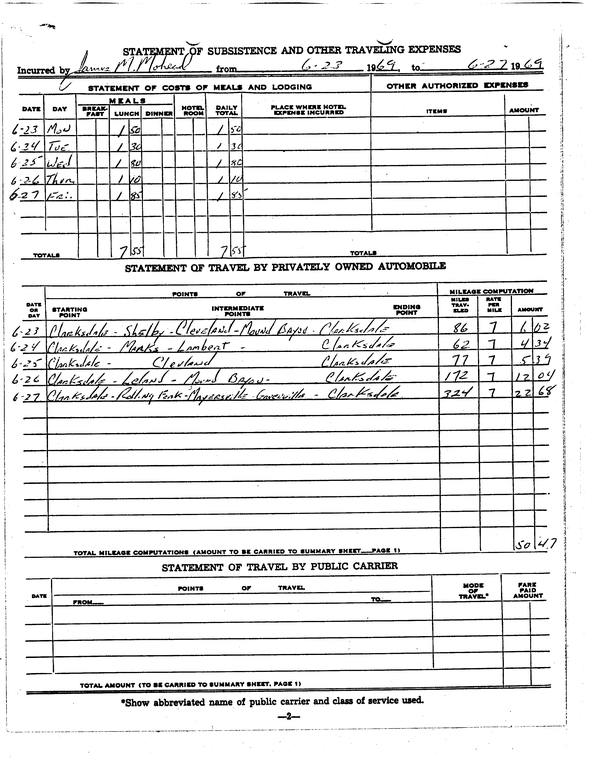 STATEMENT OF SUBSISTENCE AND OTHER TRAVELING EXPENSES
Incurred by James M. Mohead from 6-23 1969, to 6-27 1969
STATEMENT OF COSTS OF MEALS AND LODGING OTHER AUTHORIZED EXPENSES
MEALS
DATE DAY BREAKFAST LUNCH DINNER HOTEL ROOM DAILY TOTAL PLACE WHERE HOTEL EXPENSE INCURRED ITEMS AMOUNT
6-23 Mon 1 50 1 50
6-24 Tue 1 30 1 30
6 25 Wed 1 80 1 80
6-26 Thur 1 10 1 10
6-27 Fri. 1 85 1 85
TOTALS 7 55 7 55 TOTALS
STATEMENT OF TRAVEL BY PRIVATELY OWNED AUTOMOBILE
POINTS OF TRAVEL MILEAGE COMPUTATION
DATE OR DAY STARTING POINT INTERMEDIATE POINTS ENDING POINT MILES TRAVELED RATE PER MILE AMOUNT
6-23 Clarksdale - Shelby - Cleveland - Mound Bayou - Clarksdale 86 7 6 02
6-24 Clarksdale - Marks - Lambert - Clarksdale 62 7 4 34
6-25 Clarksdale - Clevland Clarksdale 77 7 5 39
6-26 Clarksdale - Leland - Mound Bayou - Clarksdale 172 7 12 04
6-27 Clarksdale - Rolling Fork - Mayersville Greenville - Clarksdale 324 7 22 68
TOTAL MILEAGE COMPUTATIONS (AMOUNT TO BE CARRIED TO SUMMARY SHEET PAGE 1) 50 47
STATEMENT OF TRAVEL BY PUBLIC CARRIER
DATE POINTS OF TRAVEL MODE OF TRAVEL* FARE PAID AMOUNT
FROM TO
TOTAL AMOUNT (TO BE CARRIED TO SUMMARY SHEET, PAGE 1)
*Show abbreviated name of public carrier and class of service used.
—2—